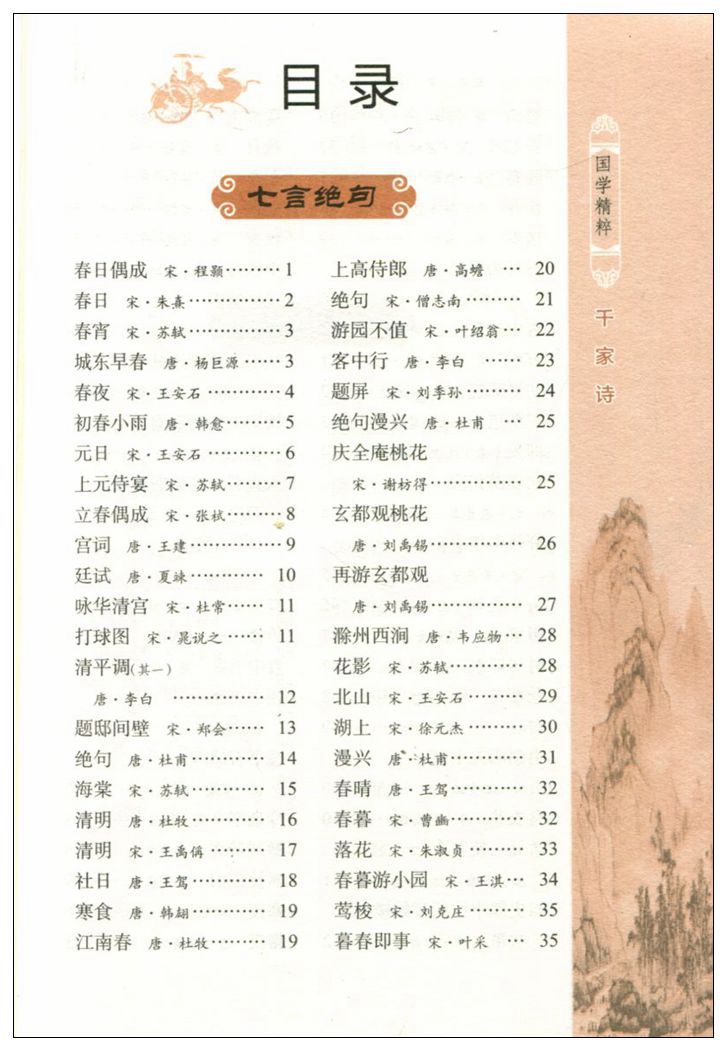 目录
七言绝句
春日偶成 宋·程颢………1
春日 宋·朱熹……………2
春宵 宋·苏轼……………3
城东早春 唐·杨巨源……3
春夜 宋·王安石…………4
初春小雨 唐·韩愈………5
元日 宋·王安石…………6
上元侍宴 宋·苏轼………7
立春偶成 宋·张栻………8
宫词 唐·王建……………9
廷试 唐·夏竦…………10
咏华清宫 宋·杜常……11
打球图 宋·晁说之……11
清平调(其一)
唐·李白 ……………12
题邸间壁 宋·郑会……13
绝句 唐·杜甫…………14
海棠 宋·苏轼…………15
清明 唐·杜牧…………16
清明 宋·王禹偁………17
社日 唐·王驾…………18
寒食 唐·韩翃…………19
江南春 唐·杜牧………19
上高侍郎 唐·高蟾 …20
绝句 宋·僧志南………21
游园不值 宋·叶绍翁…22
客中行 唐·李白 ……23
题屏 宋·刘季孙………24
绝句漫兴 唐·杜甫 …25
庆全庵桃花
宋·谢枋得……………25
玄都观桃花
唐·刘禹锡……………26
再游玄都观
唐·刘禹锡……………27
滁州西涧 唐·韦应物…28
花影 宋·苏轼…………28
北山 宋·王安石………29
湖上 宋·徐元杰………30
漫兴 唐·杜甫…………31
春晴 唐·王驾…………32
春暮 宋·曹豳…………32
落花 宋·朱淑贞………33
春暮游小园 宋·王淇…34
莺梭 宋·刘克庄………35
暮春即事 宋·叶采 …35
国学精粹
千家诗